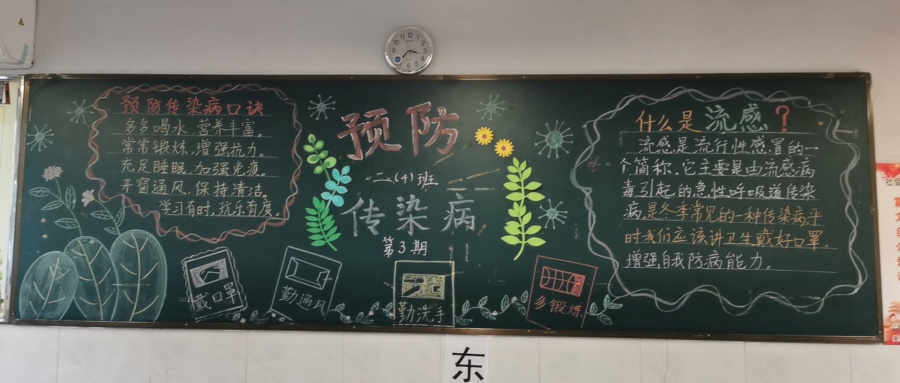 预防传染病口诀
多多喝水,营养丰富。
常常锻炼,增强抗力
充足睡眠,加强免疫。
开窗通风,保持清洁。
学习有时,玩乐有度。
预防
二(4)班
传染病
第3期
什么是流感?
流感是流行性感冒的一
个简称,它主要是由流感病
毒引起的急性呼吸道传染
病,是冬季常见的一种传染病,平
时我们应该讲卫生戴好口罩,
增强自我防病能力。
戴口罩
勤通风
勤洗手
多锻炼
东